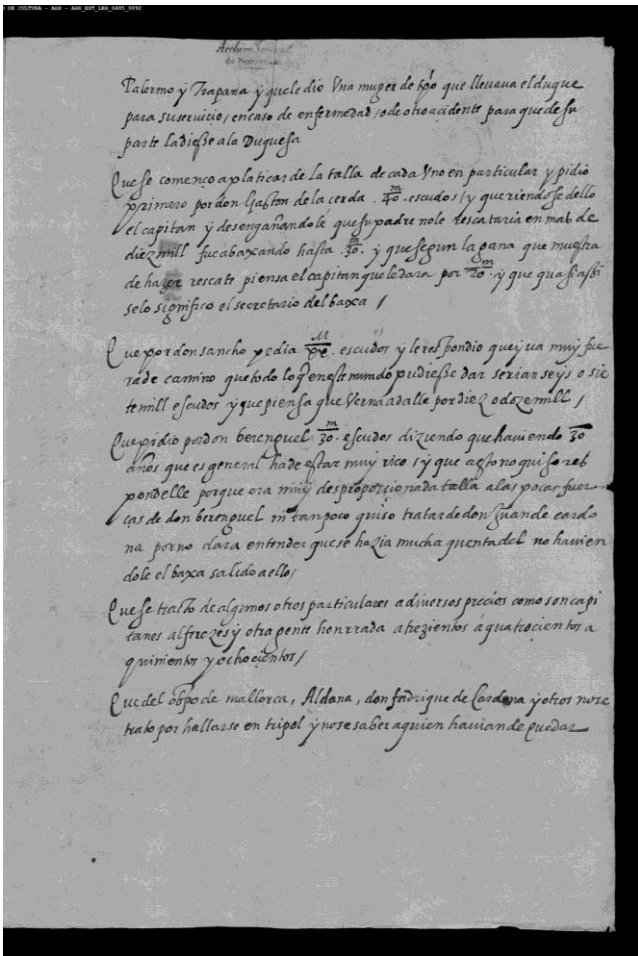 DE CULTURA - AGS - AGS_EST_LEG_0485_0092
Archivo General
de Simancas
Palermo y Trapana y que le dio Una muger de xpo que lleuaua el duque
para su seruicio / en caso de enfermedad / o de otro accidente para que de su
parte la diesse a la Duquesa
Que se començo a platicar de la talla de cada Uno en particular y pidio
primero por don Gaston de la cerda .40 m. escudos / y que riendose dello
el capitan y desengañandole que su padre no le rescataria en mas de
diez mill fue abaxando hasta .30 m. y que segun la gana que muestra
de hazer rescate piensa el capitan que le dara por 20 m. y que quasi assi
se lo significo el secretario del baxa /
Que por don sancho pedia M escudos y le respondio que yua muy fue
ra de camino que todo lo q en este mundo pudiesse dar serian seys o sie
te mill escudos y que piensa que Verna a dalle por diez o doze mill /
Que pidio por don berenguel 30 m. escudos diziendo que hauiendo 30
años que es general ha de estar muy rico / y que a esto no quiso res
pondelle porque era muy desproporcionada talla a las pocas fuer
ças de don berenguel ni tanpoco quiso tratar de don Juan de cardo
na por no dar a entender que se hazia mucha quenta del no hauien
dole el baxa salido a ello /
Que se tratto de algunos otros particulares a diuersos precios como son capi
tanes alferezes y otra gente honrrada a trezientos a quatrocientos a
quinientos y ochocientos /
Que del obpo de mallorca, Aldana, don fadrique de Cardona y otros no se
trato por hallarse en tripol y no se saber a quien hauian de quedar